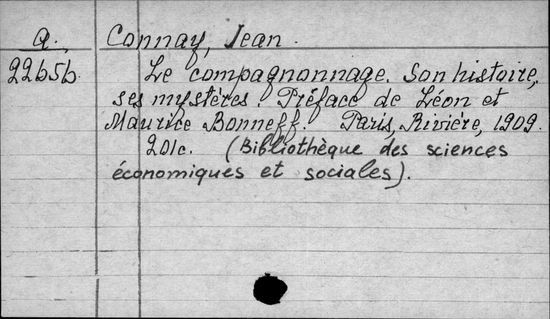 a. Connay, Jean.
22656. Le compagnonnage. Son histoire,
ses mystères. Préface de Léon et
Maurice Bonneff. Paris, Rivière, 1909.
201c. (Bibliothèque des sciences
économiques et sociales).